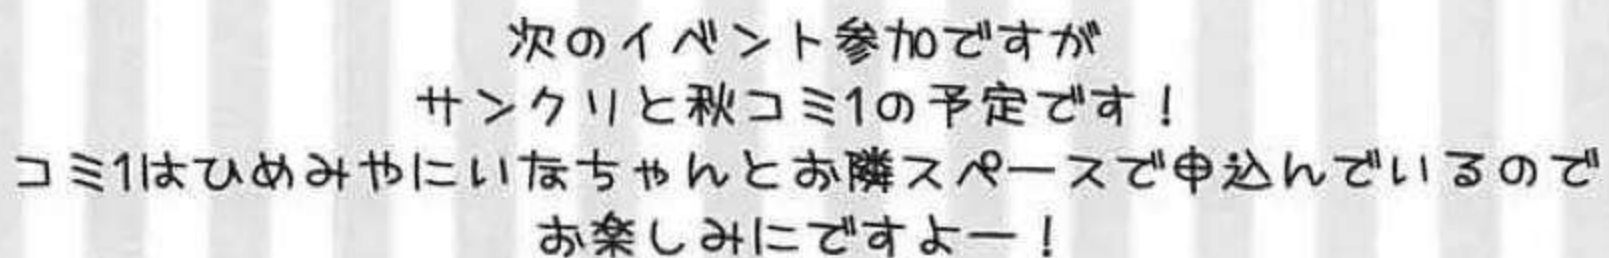 次のイベント参加ですが
サンクリと秋コミ1の予定です！
コミ1はひめみやにいなちゃんとお隣スペースで申込んでいるので
お楽しみにですよー！